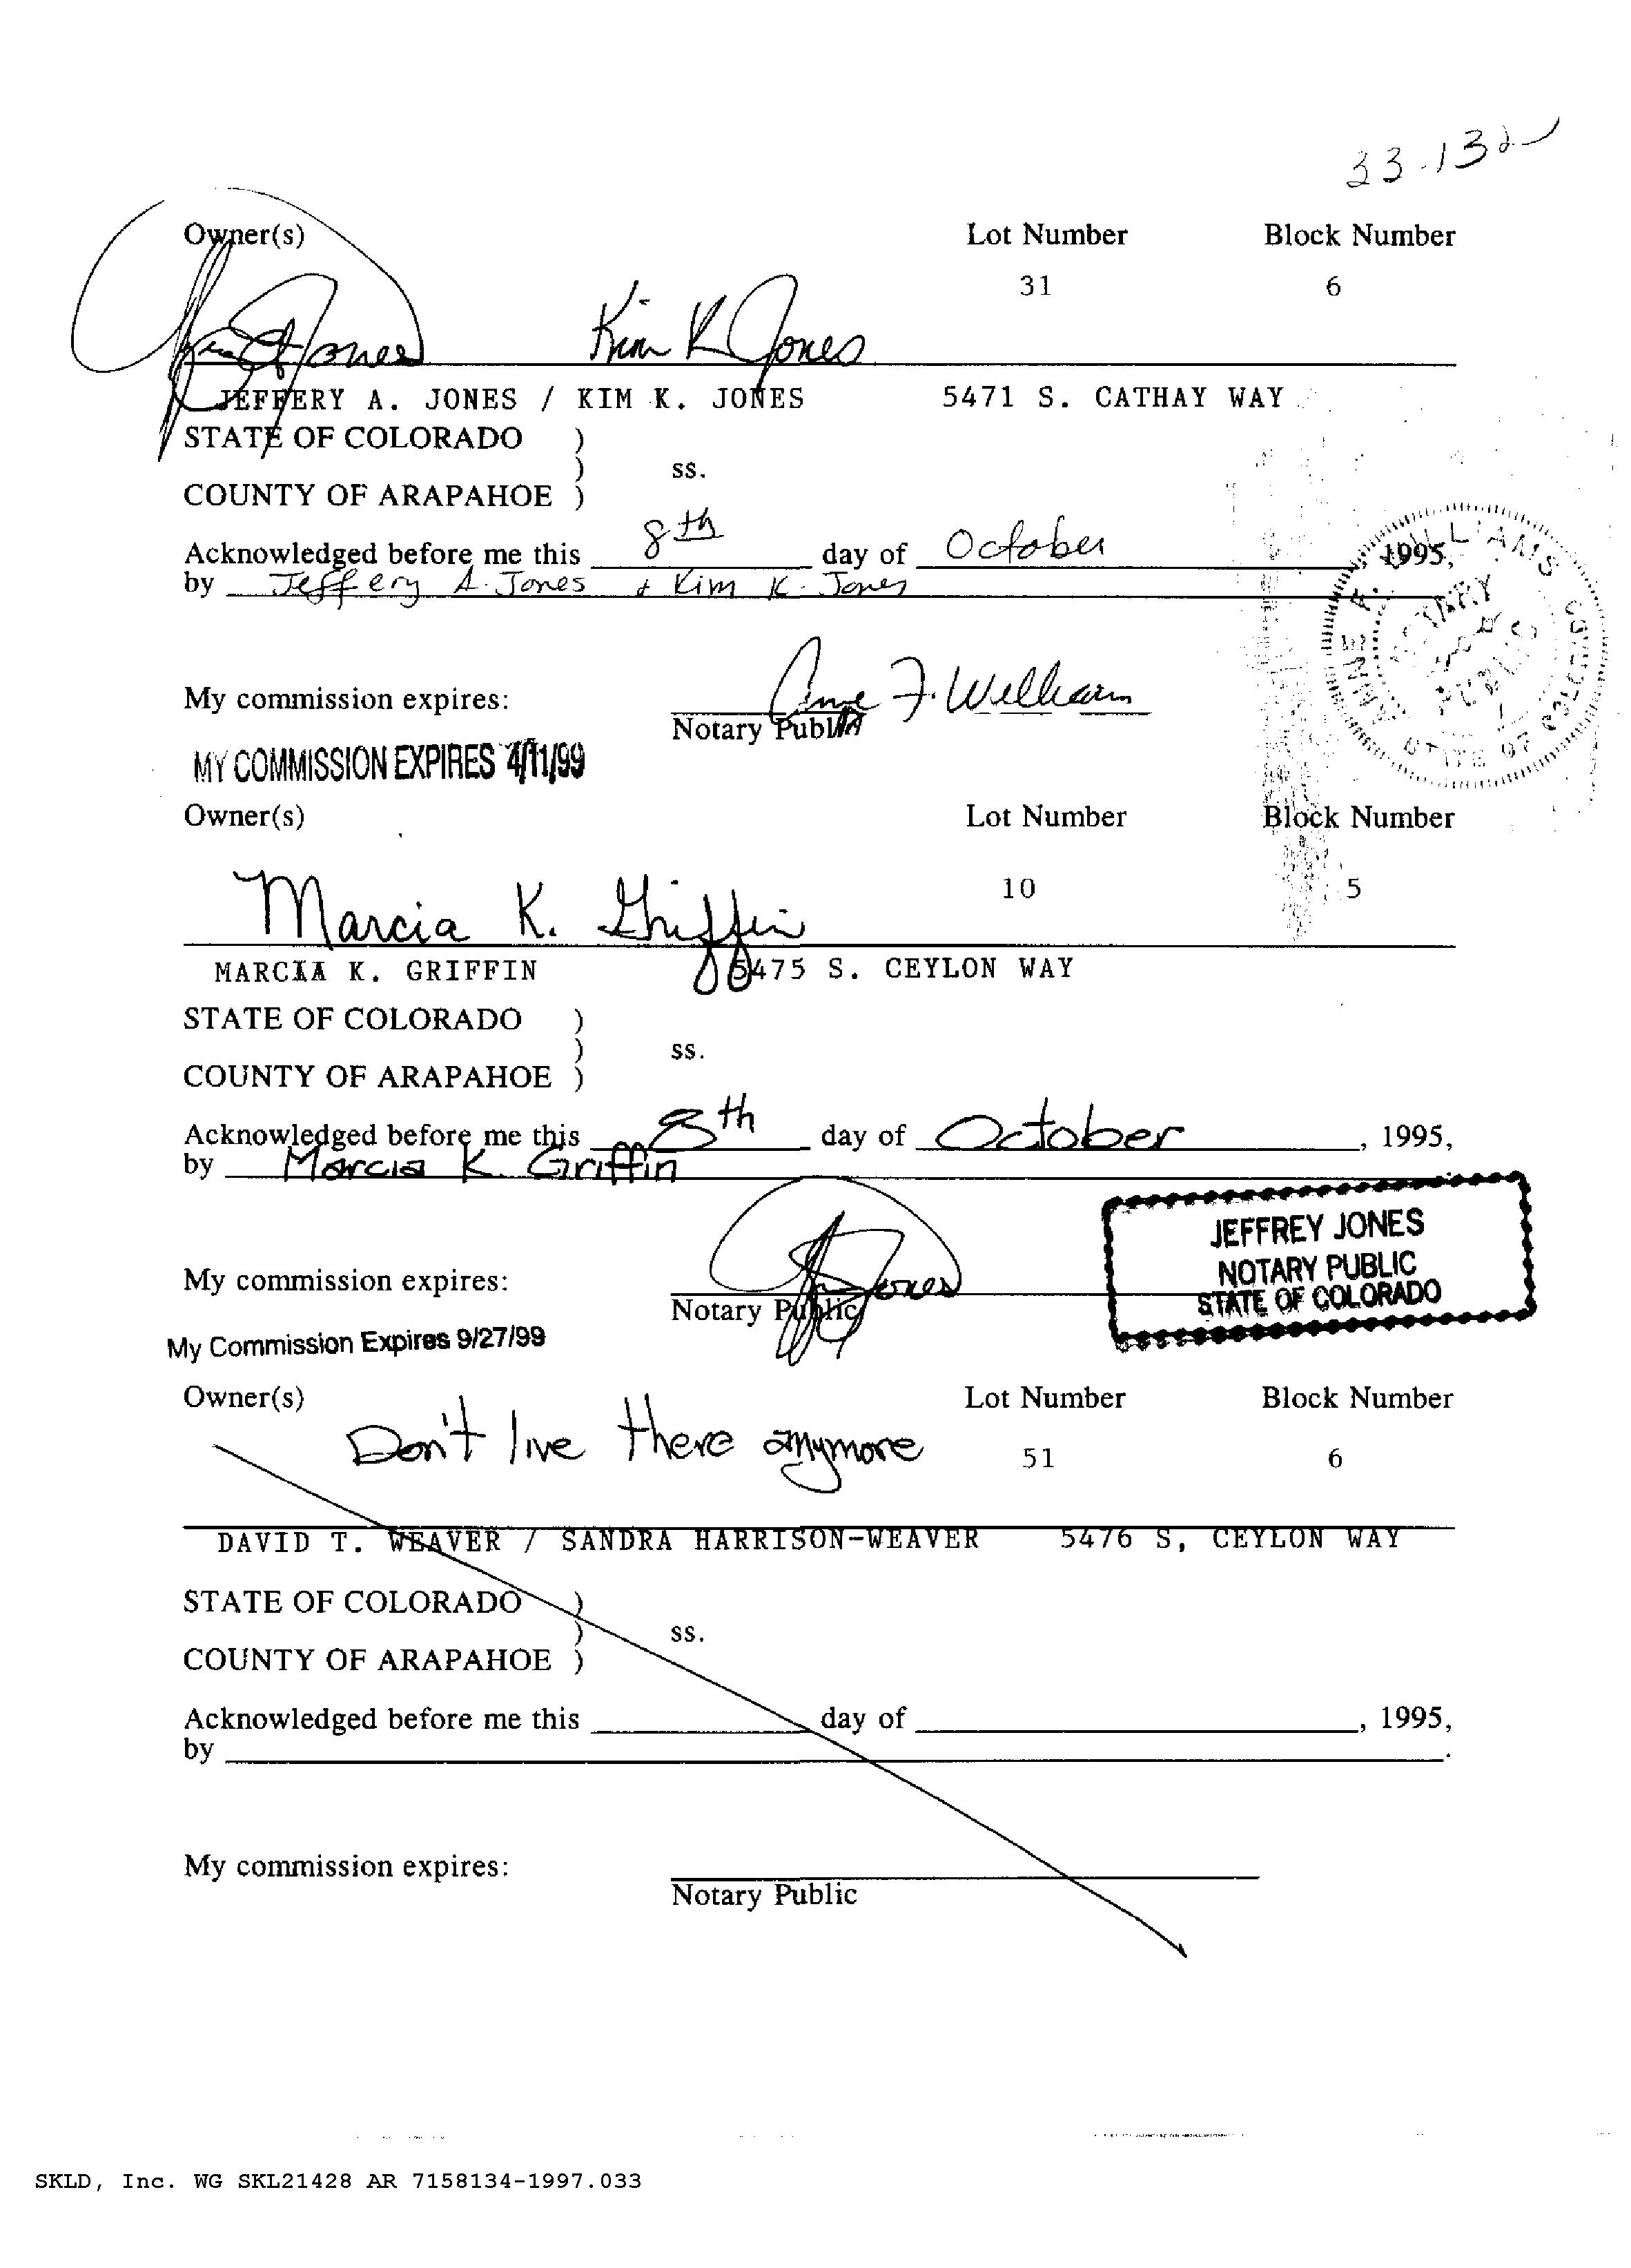 33-132
Owner(s) Lot Number Block Number
31 6
Jones Kim K Jones
JEFFERY A. JONES / KIM K. JONES 5471 S. CATHAY WAY
STATE OF COLORADO )
) ss.
COUNTY OF ARAPAHOE )
Acknowledged before me this 8th day of October 1995,
by Jeffery A. Jones + Kim K. Jones
My commission expires:
Anne F. William
Notary Public
MY COMMISSION EXPIRES 4/11/99
Owner(s) Lot Number Block Number
10 5
Marcia K. Griffin
MARCIA K. GRIFFIN 5475 S. CEYLON WAY
STATE OF COLORADO )
) ss.
COUNTY OF ARAPAHOE )
Acknowledged before me this 8th day of October, 1995,
by Marcia K. Griffin
JEFFREY JONES
NOTARY PUBLIC
STATE OF COLORADO
My commission expires: Jones
Notary Public
My Commission Expires 9/27/99
Owner(s) Lot Number Block Number
Don't live there anymore 51 6
DAVID T. WEAVER / SANDRA HARRISON-WEAVER 5476 S, CEYLON WAY
STATE OF COLORADO )
) ss.
COUNTY OF ARAPAHOE )
Acknowledged before me this ________ day of ________, 1995,
by ________.
My commission expires:
Notary Public
SKLD, Inc. WG SKL21428 AR 7158134-1997.033